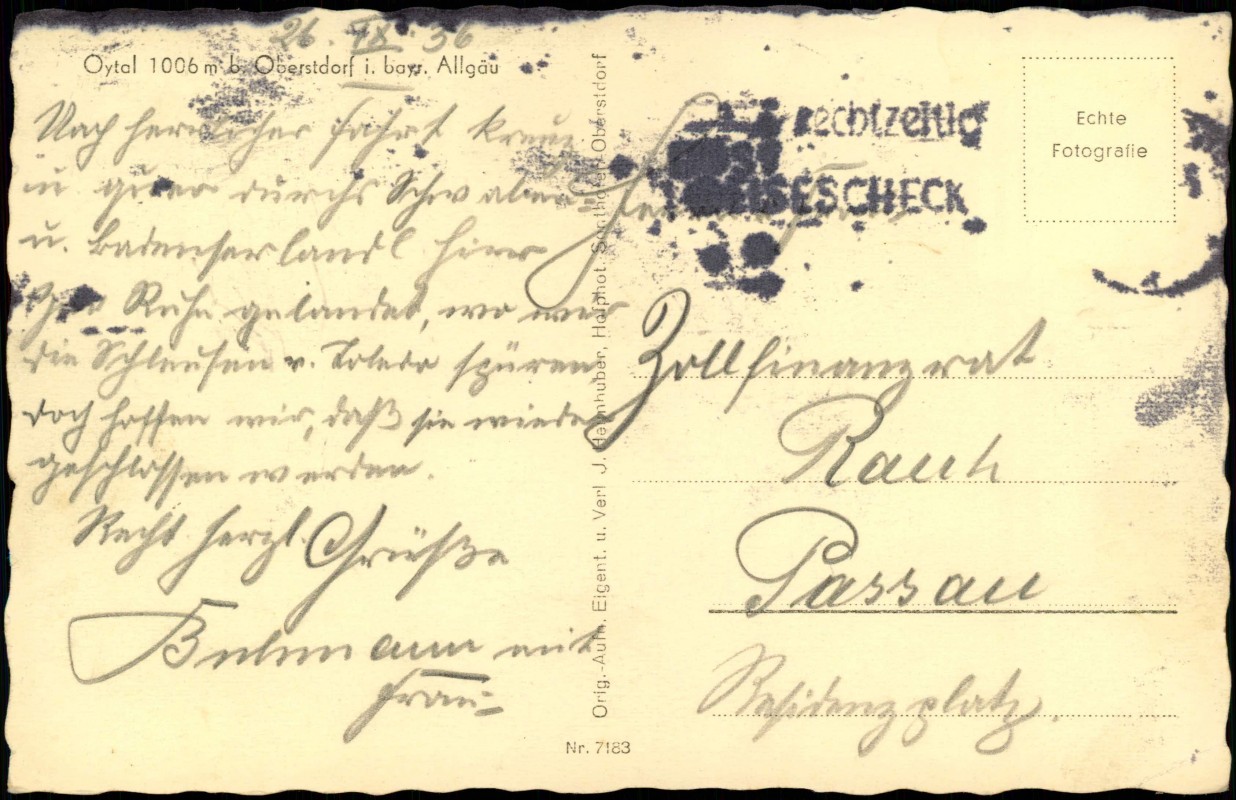 26. IX. 36
Oytal 1006 m b. Oberstdorf i. bayr. Allgäu
Nach herrlicher Fahrt kreuz
u. quer durchs Schwaben=
u. Badenserlandl hier
zur Ruhe gelandet, wo wir
die Schleusen v. Toledo spüren
doch hoffen wir, daß sie wieder
geschlossen werden.
Recht herzl. Grüße
mit
Frau
Orig.-Aufn. Eigent. u. Verl. J. Heimhuber, Hofphot. Sonthofen-Oberstdorf
Nr. 7183
rechtzeitig
REISESCHECK
Echte
Fotografie
Zollfinanzrat
Rauh
Passau
Residenzplatz.